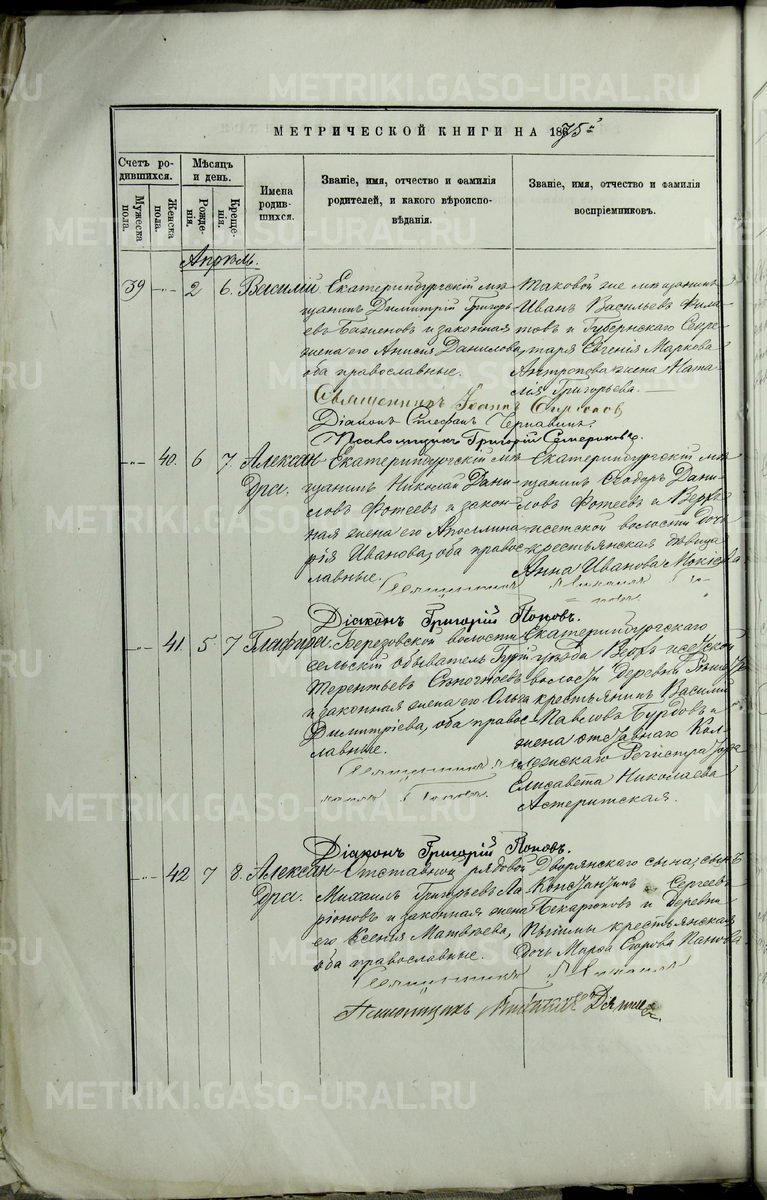 METRIKI.GASO-URAL.RU
МЕТРИЧЕСКОЙ КНИГИ НА 1875й
Счетъ родившихся.
Мужеска пола.
Женска пола.
Мѣсяцъ и день.
Рожденія.
Крещенія.
Имена родившихся.
Званіе, имя, отчество и фамилія
родителей, и какого вѣроиспо-
вѣданія.
Званіе, имя, отчество и фамилія
воспріемниковъ.
Апрѣль.
39 — 2 6. Василій
Екатеринбургскій мѣ-
щанинъ Димитрій Григорь-
евъ Баженовъ и законная
жена его Анисія Данилова,
оба православные.
Таковой же мѣщанинъ
Иванъ Васильевъ Фила-
товъ и Губернскаго Секре-
таря Евгенія Маркова
Антропова жена Ната-
лія Григорьева.
Священникъ Іоаннъ
Діаконъ Стефанъ Чернавинъ
Псаломщикъ Григорій
— 40. 6 7. Алексан-
дра.
Екатеринбургскій мѣ-
щанинъ Николай Дани-
ловъ Фотеевъ и закон-
ная жена его Аполлина-
рія Иванова, оба правос-
лавные.
Екатеринбургскій мѣ-
щанинъ Ѳеодоръ Дани-
ловъ Фотеевъ и Верх-
исетской волости дочь
крестьянская дѣвица
Анна Иванова Мокѣева.
Священникъ
Діаконъ Григорій Поповъ.
— 41. 5 7 Глафира.
Березовской волости
сельскій обыватель Гурій
Терентьевъ
и законная жена его Ольга
Димитріева, оба правос-
лавные.
Екатеринбургскаго
уѣзда Верхъ-исетской
волости деревни
крестьянинъ Василій
Павловъ Бурдовъ и
жена отставнаго Кол-
лежскаго Регистратора
Елисавета Николаева
Астеритская.
Священникъ
Поповъ.
Діаконъ Григорій Поповъ.
— 42 7 8. Алексан-
дра.
Отставной рядовой
Михаилъ Григорьевъ Ла-
ріоновъ и законная жена
его Ксенія Матвѣева,
оба православные.
Дворянскаго сына, сынъ
Константинъ Сергеевъ
Пекарюковъ и деревни
Пышмы крестьянская
дочь Марѳа Егорова Панова.
Священникъ
Псаломщикъ